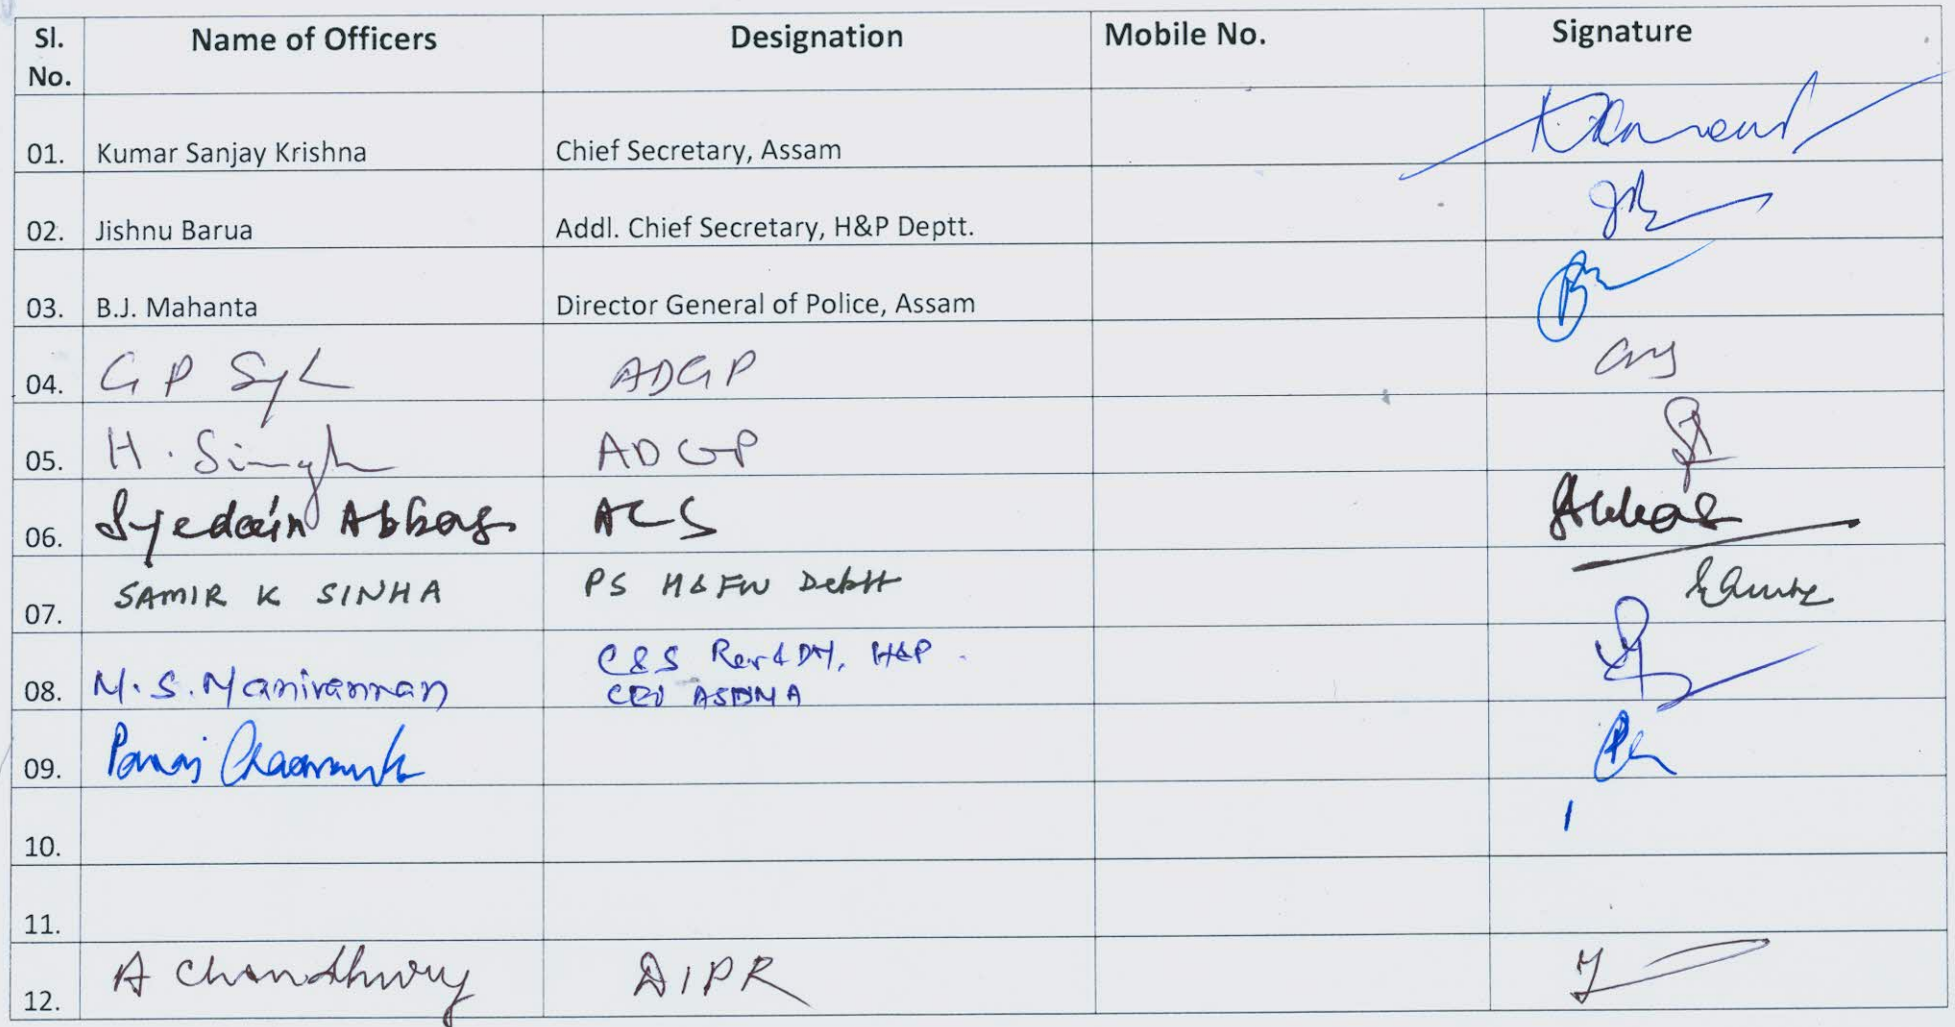 Sl. No. Name of Officers Designation Mobile No. Signature
01. Kumar Sanjay Krishna Chief Secretary, Assam
02. Jishnu Barua Addl. Chief Secretary, H&P Deptt.
03. B.J. Mahanta Director General of Police, Assam
04. G P ADGP
05. H. Singh ADGP
06. Syedain Abbas ACS Abbas
07. SAMIR K SINHA PS H&FW Deptt
08. M.S. Manivannan C&S Rev & DM, H&P.
CEO ASDMA
09.
10.
11.
12. A Choudhury DIPR